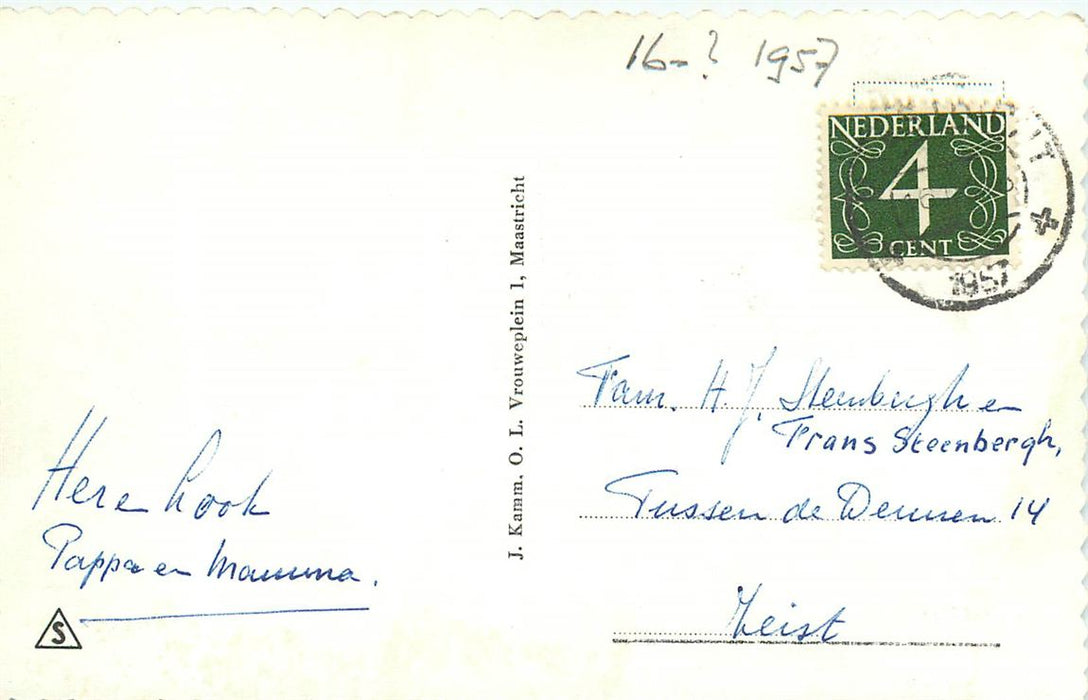 16-? 1957
NEDERLAND
4
CENT
1957
J. Kamm. O. L. Vrouweplein 1, Maastricht
Fam. H. J. Steenbergh en
Frans Steenbergh,
Tussen de Dennen 14
Zeist
Pappa en Mamma.
S